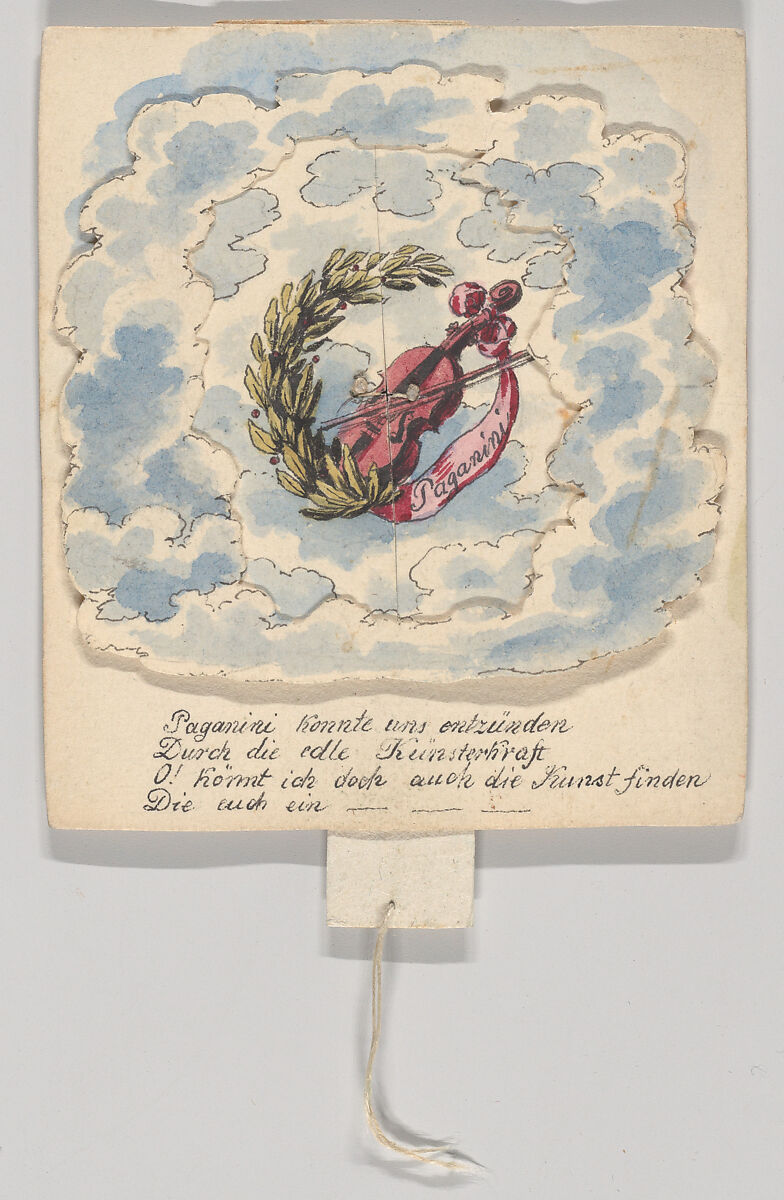 Paganini
Paganini konnte uns entzünden
Durch die edle Künsterkraft
O! könnt ich doch auch die Kunst finden
Die euch ein — — —